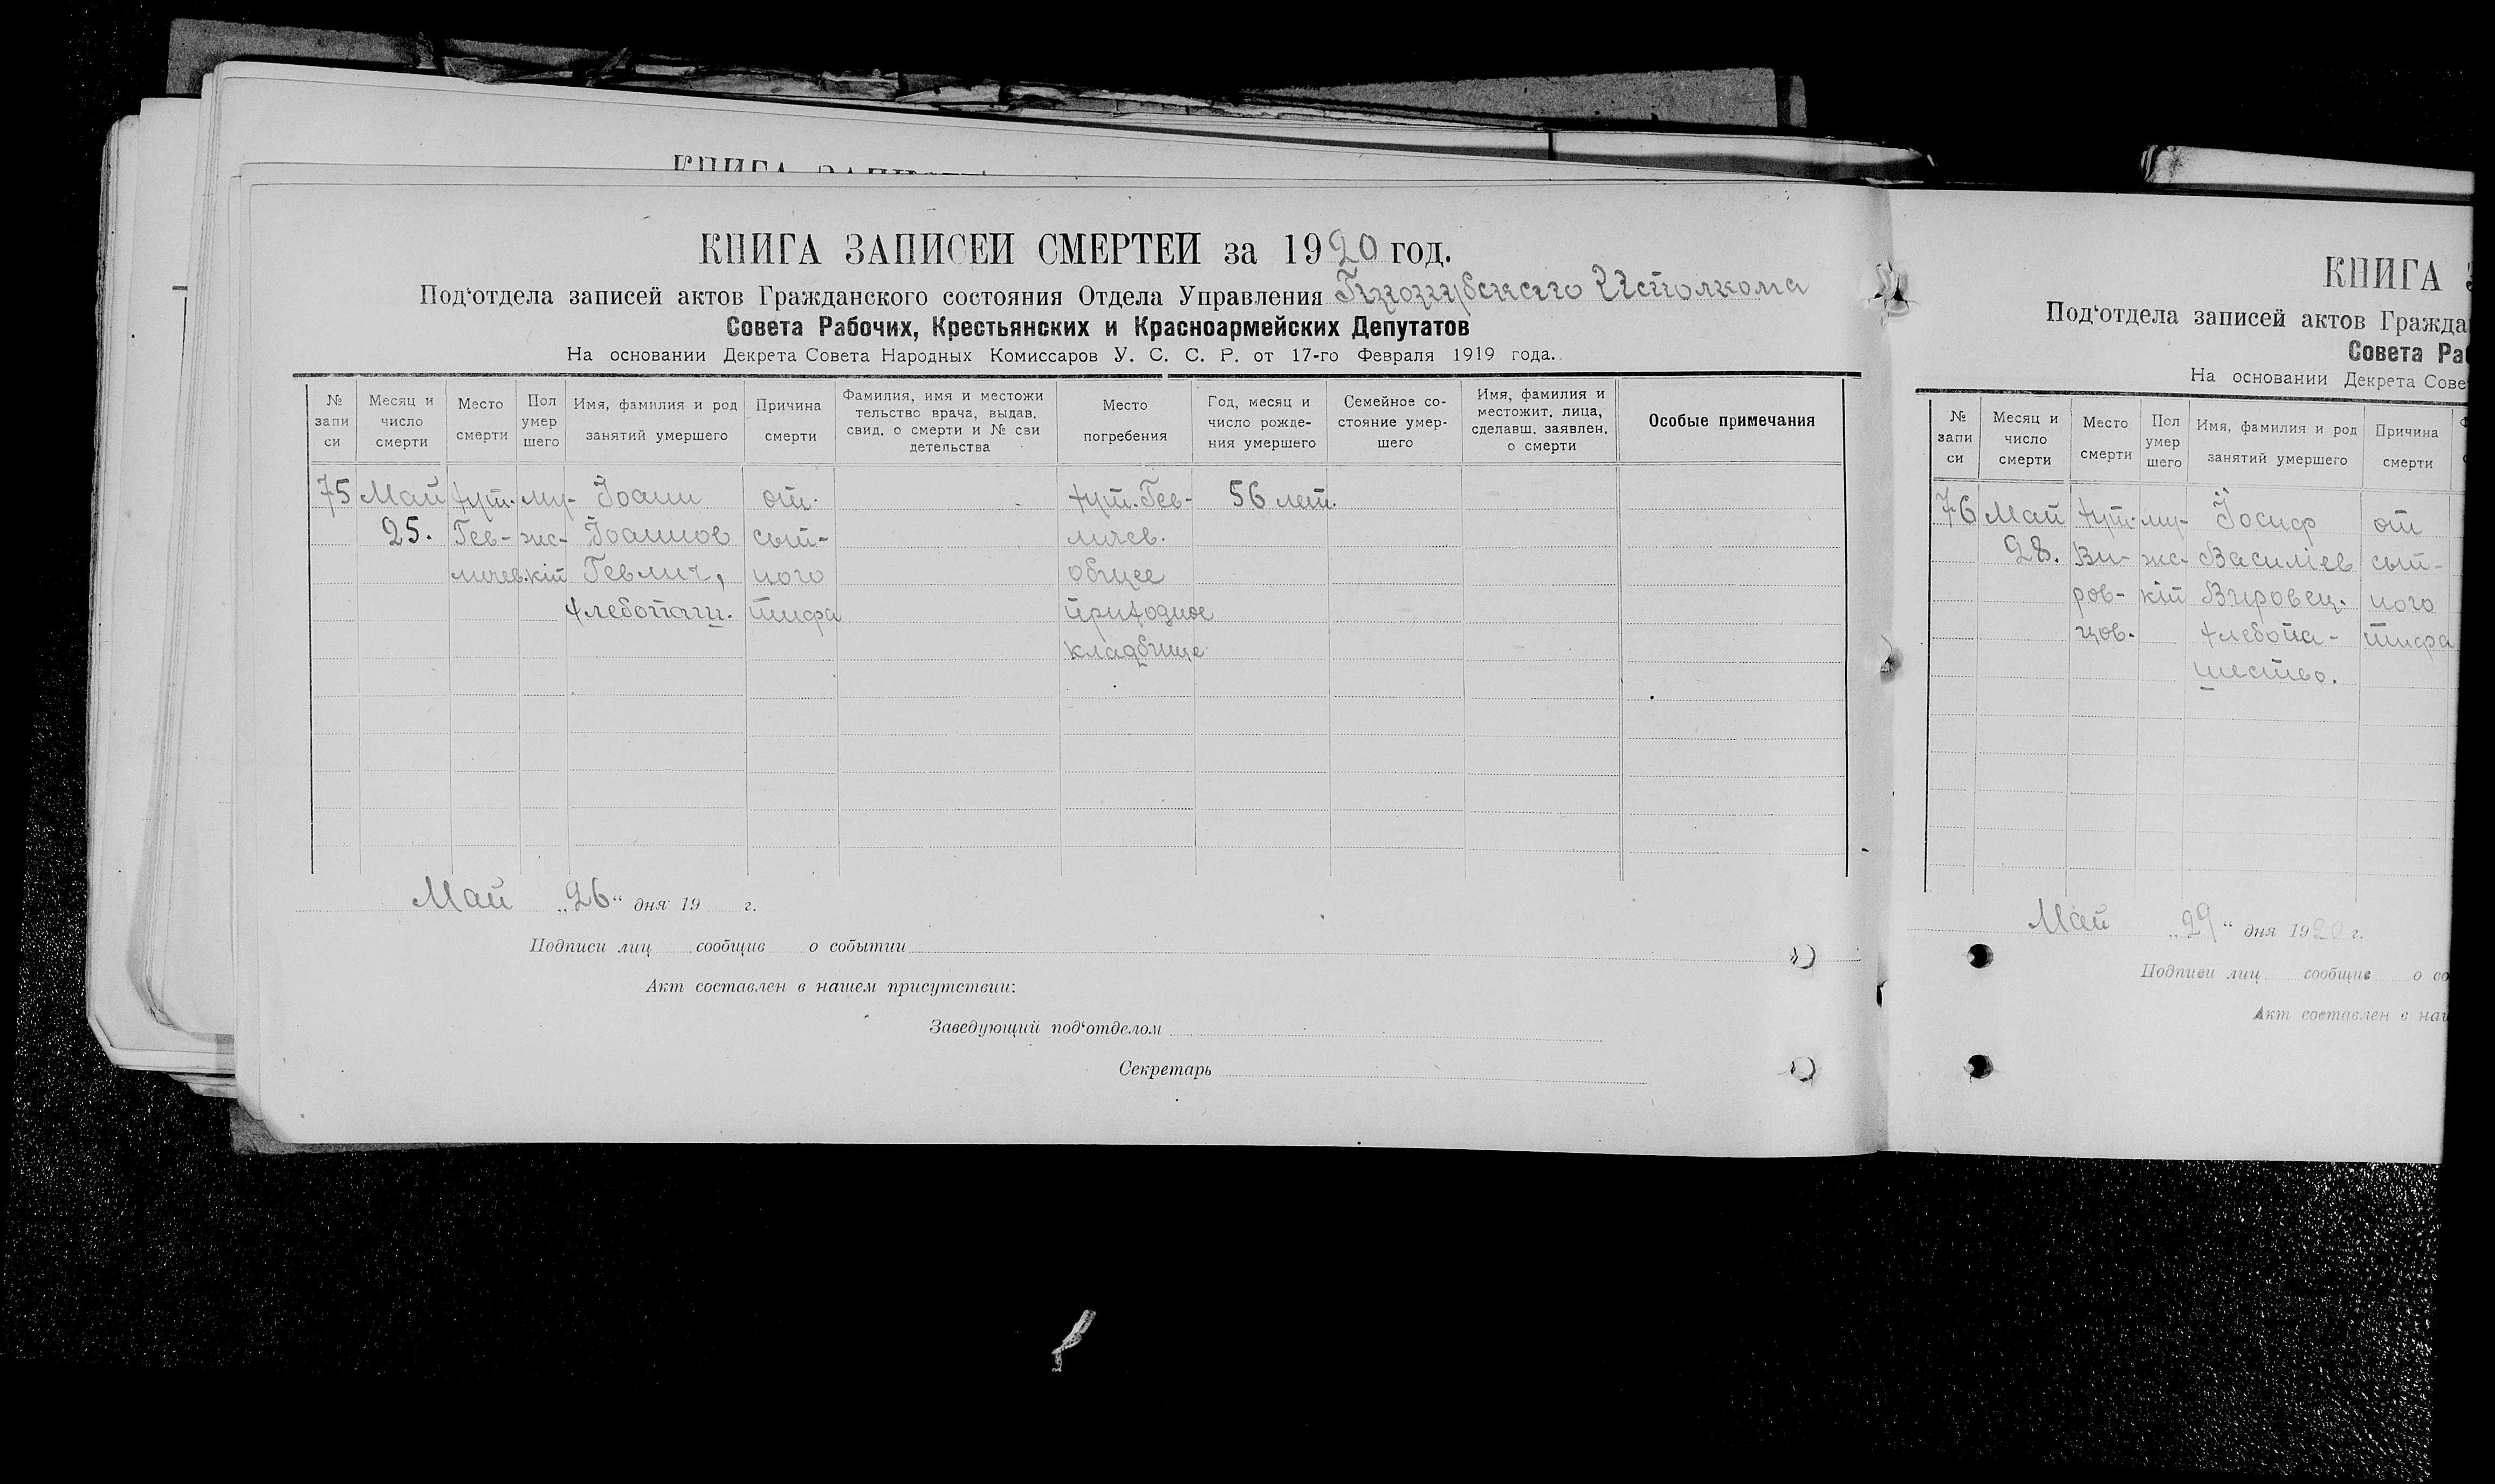 КНИГА ЗАПИСЕЙ СМЕРТЕЙ за 1920 год.
Под‘отдела записей актов Гражданского состояния Отдела Управления
Совета Рабочих, Крестьянских и Красноармейских Депутатов
На основании Декрета Совета Народных Комиссаров У. С. С. Р. от 17-го Февраля 1919 года.
№ запи си
Месяц и число смерти
Место смерти
Пол умер шего
Имя, фамилия и род занятий умершего
Причина смерти
Фамилия, имя и местожи тельство врача, выдав. свид. о смерти и № сви детельства
Место погребения
Год, месяц и число рожде- ния умершего
Семейное со- стояние умер- шего
Имя, фамилия и местожит. лица, сделавш. заявлен. о смерти
Особые примечания
75 Май хут. му- Іоанн от хут. Гев- 56 лет.
25. Гев- жс- Іоаннов сып- личев.
личев. кій Гевлич, ного общее
хлебопаш. тифа приходное
кладбище
Май „26“ дня 19 г.
Подписи лиц сообщив о событии
Акт составлен в нашем присутствии:
Заведующий под‘отделом
Секретарь
КНИГА
Под‘отдела записей актов Гражда
Совета Ра
На основании Декрета Сове
№ запи си
Месяц и число смерти
Место смерти
Пол умер шего
Имя, фамилия и род занятий умершего
Причина смерти
76 Май хут. му- Іосиф от
28. Ви- жс- Василіев сып-
ров- кій Вировец. ного
цов. хлебопа- тифа
шество.
Май „29“ дня 1920 г.
Подписи лиц сообщив о со
Акт составлен в наш